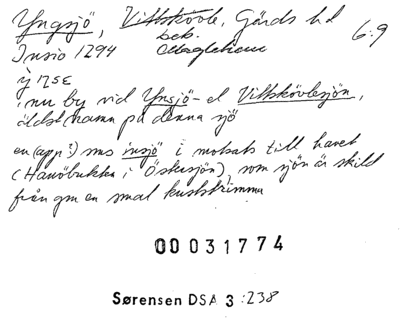 Yngsjö, Vittskövle, Gärds hd
sek.
6:9
Insio 1294 Maglehem
y 17SE
, nu by vid Yngsjö- el Vittskövlesjön,
äldst namn på denna sjö
en (app?) sms insjö i motsats till havet
(Hanöbukten i Östersjön), som sjön är skild
från gm en smal kustström̄ma
00 031774
Sørensen DSA 3 :238